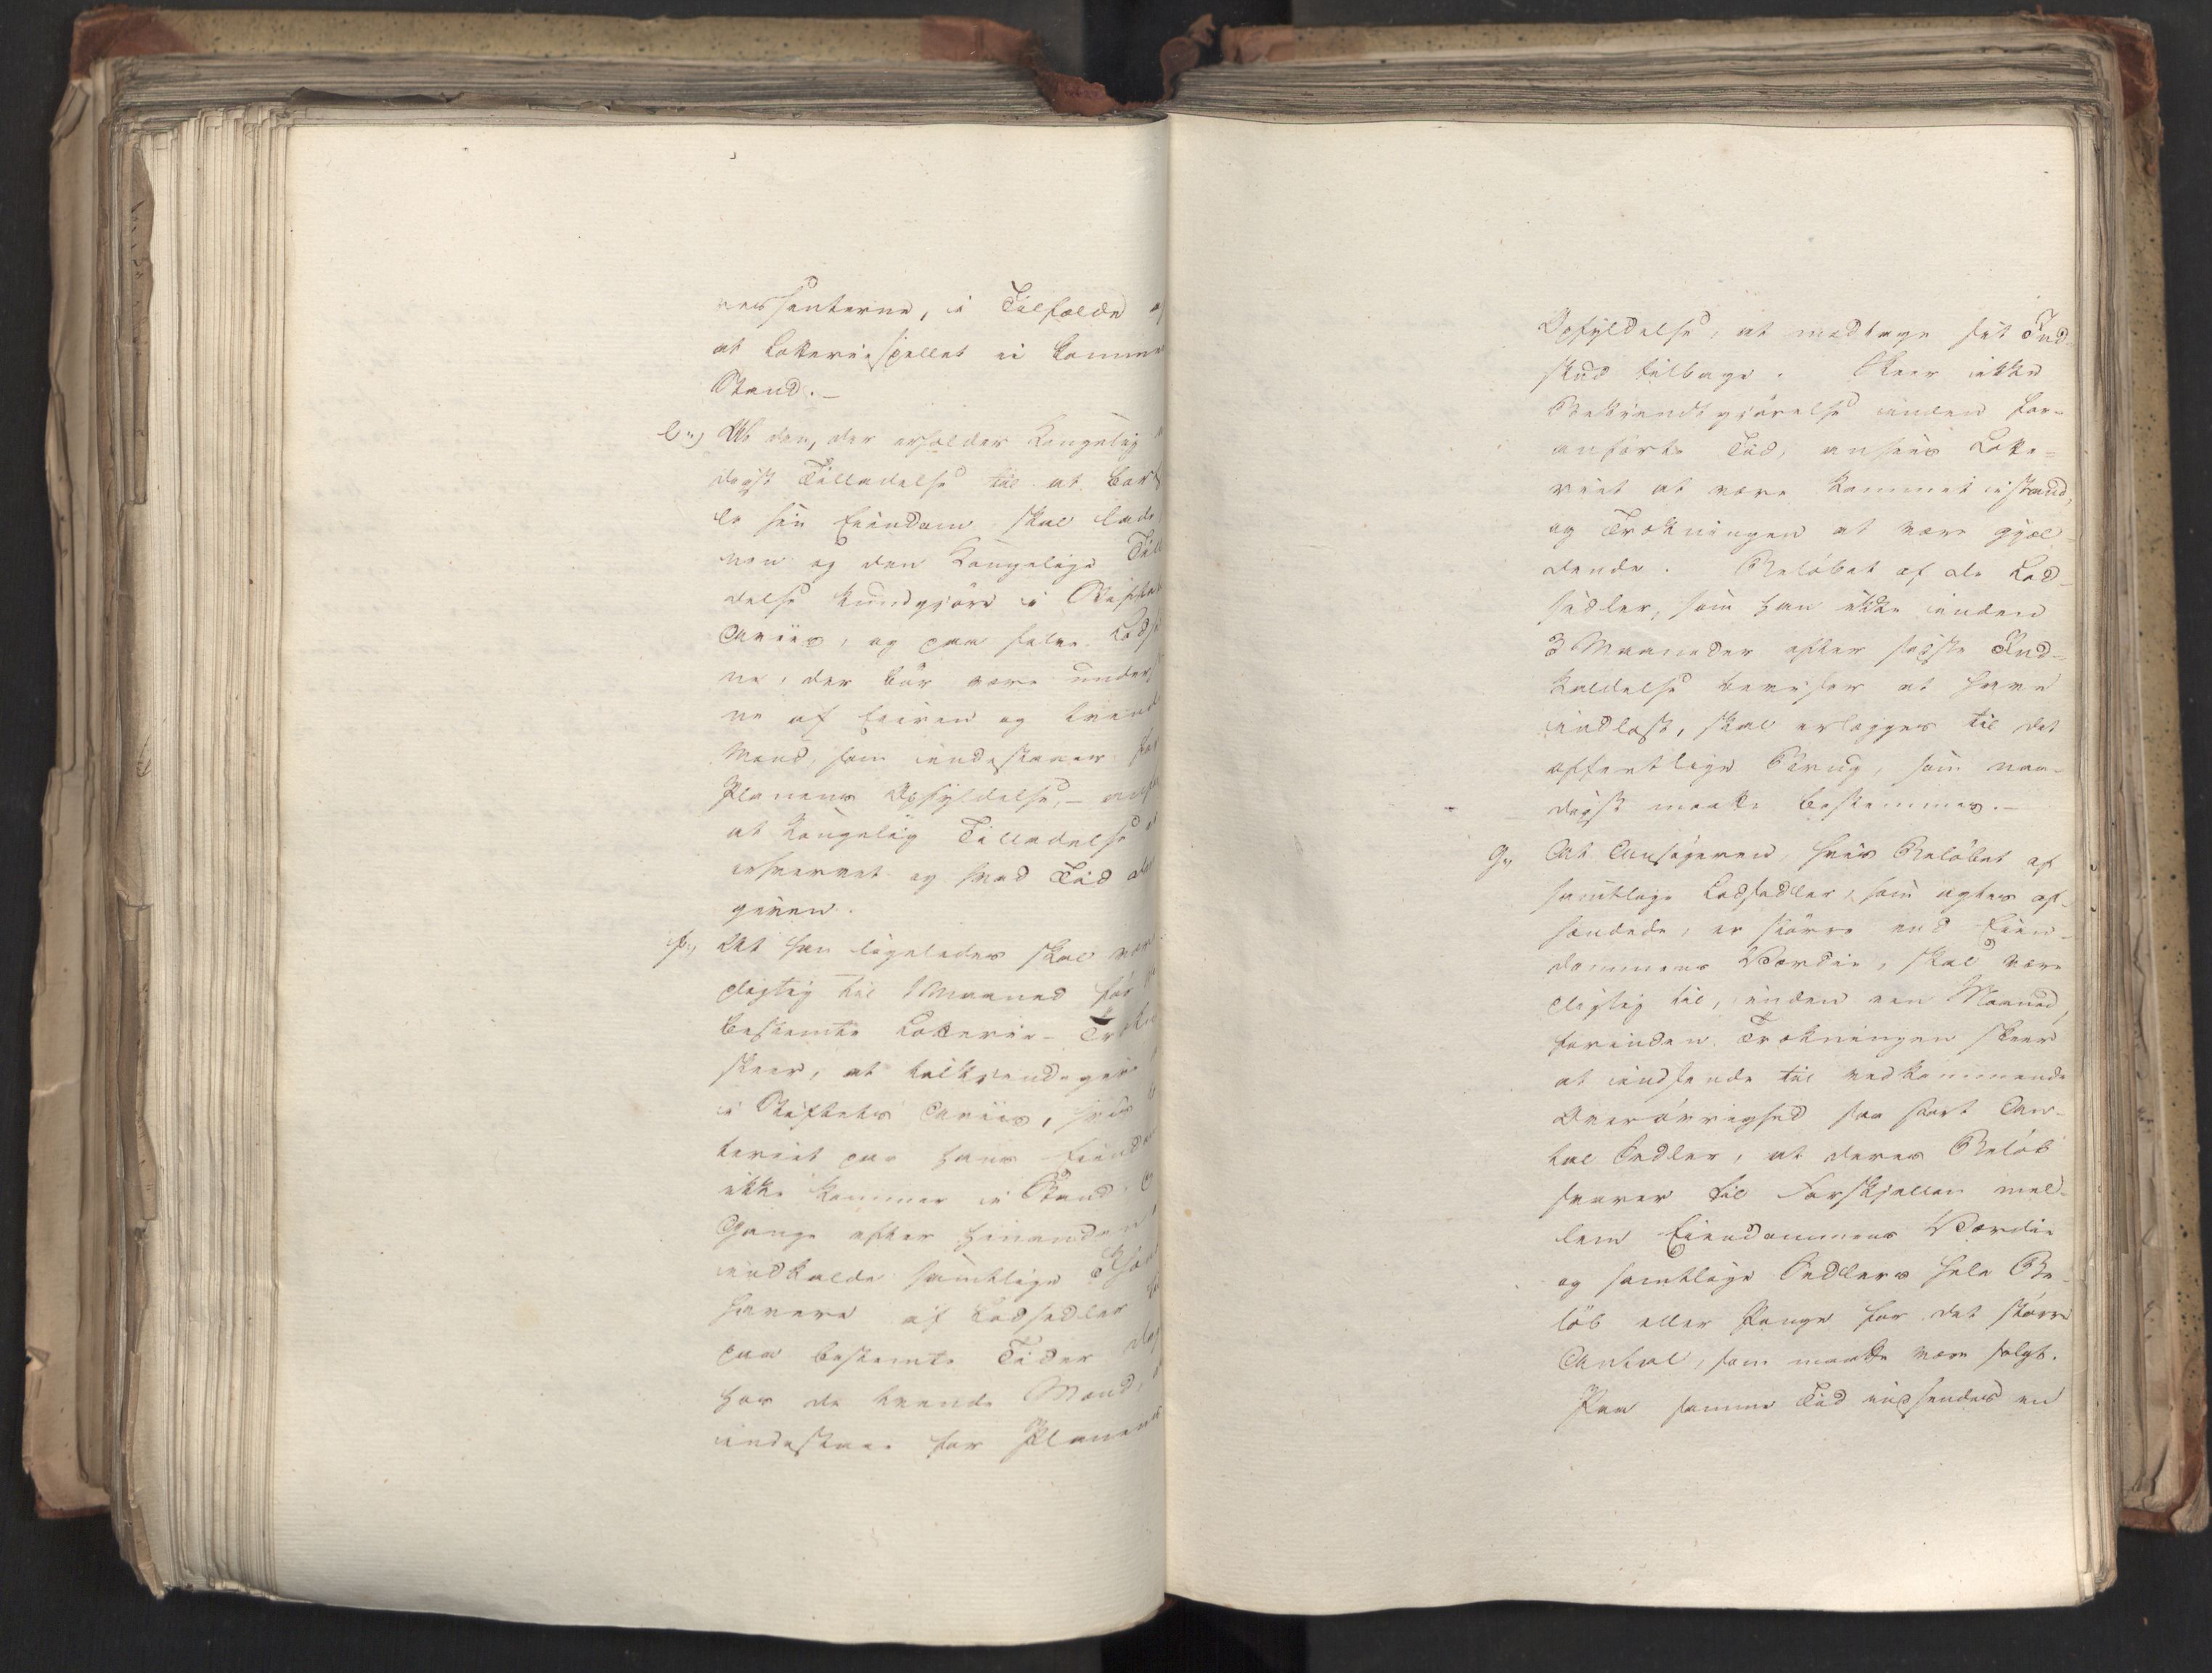 ressenterne, i Tilfælde af
at Lotteriespillet ei kommer
Stand.-
e.) At den, der erholder Kongelig
digst Tilladelse til at bort
le sin Eiendom skal lade
nen og den Kongelige Till
delse kundgjøre i Stiftets
Aviis, og paa selve Lods
ne, der bør være under
ne af Eieren og tvende
Mænd, som indestaaer for
Planens Opfyldelse, -
at Kongelig Tilladelse
erhvervet og hvad Tid den
given.
f., At han ligeledes skal være
pligtig til 1 Maaned før
bestemte Lotterie-Træk
skeer, at tilkjendegive
i Stiftets Aviis, hvis
teriet paa hans Eiendom
ikke kommer i Stand,
Gange efter hinanden
indkalde samtlige Ihæn
havere af Lodsedler
paa bestemte Tider
hos de tvende Mænd,
indestaae for Planens
Opfyldelse, at modtage sit Ind-
skud tilbage. Skeer ikke
Bekjendtgjørelse inden for-
anførte Tid, ansees Lotte-
riet at være kommet istand,
og Trækningen at være gjæl-
dende. Beløbet af de Lod-
sedler, som han ikke inden
3 Maaneder efter sidste Ind-
kaldelse beviser at have
indløst, skal erlægges til det
offentlige Brug, som naa-
digst maatte bestemmes.-
g., At Ansøgeren, hvis Beløbet af
samtlige Lodsedler, som agtes af-
hændede, er større end Eien-
dommens Værdie, skal være
pligtig til, inden een Maaned,
forinden Trækningen skeer
at indsende til vedkommende
Overøvrighed saa stort An-
tal Sedler, at deres Beløb
svarer til Forskjellen mel-
lem Eiendommens Værdie
og samtlige Sedlers hele Be-
løb eller Penge for det større
Antal, som maatte være solgt.
Paa samme Tid indsendes en